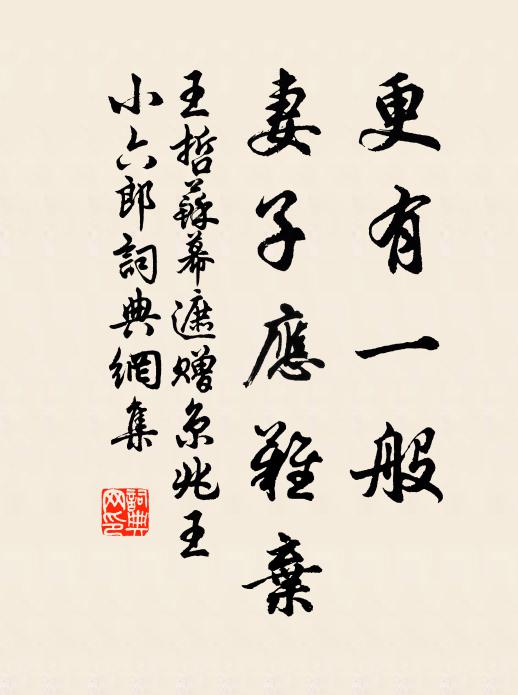 更有一般
妻子應難棄
王哲蘇幕遮贈京兆王
小六郎詞典網集
詞典網印